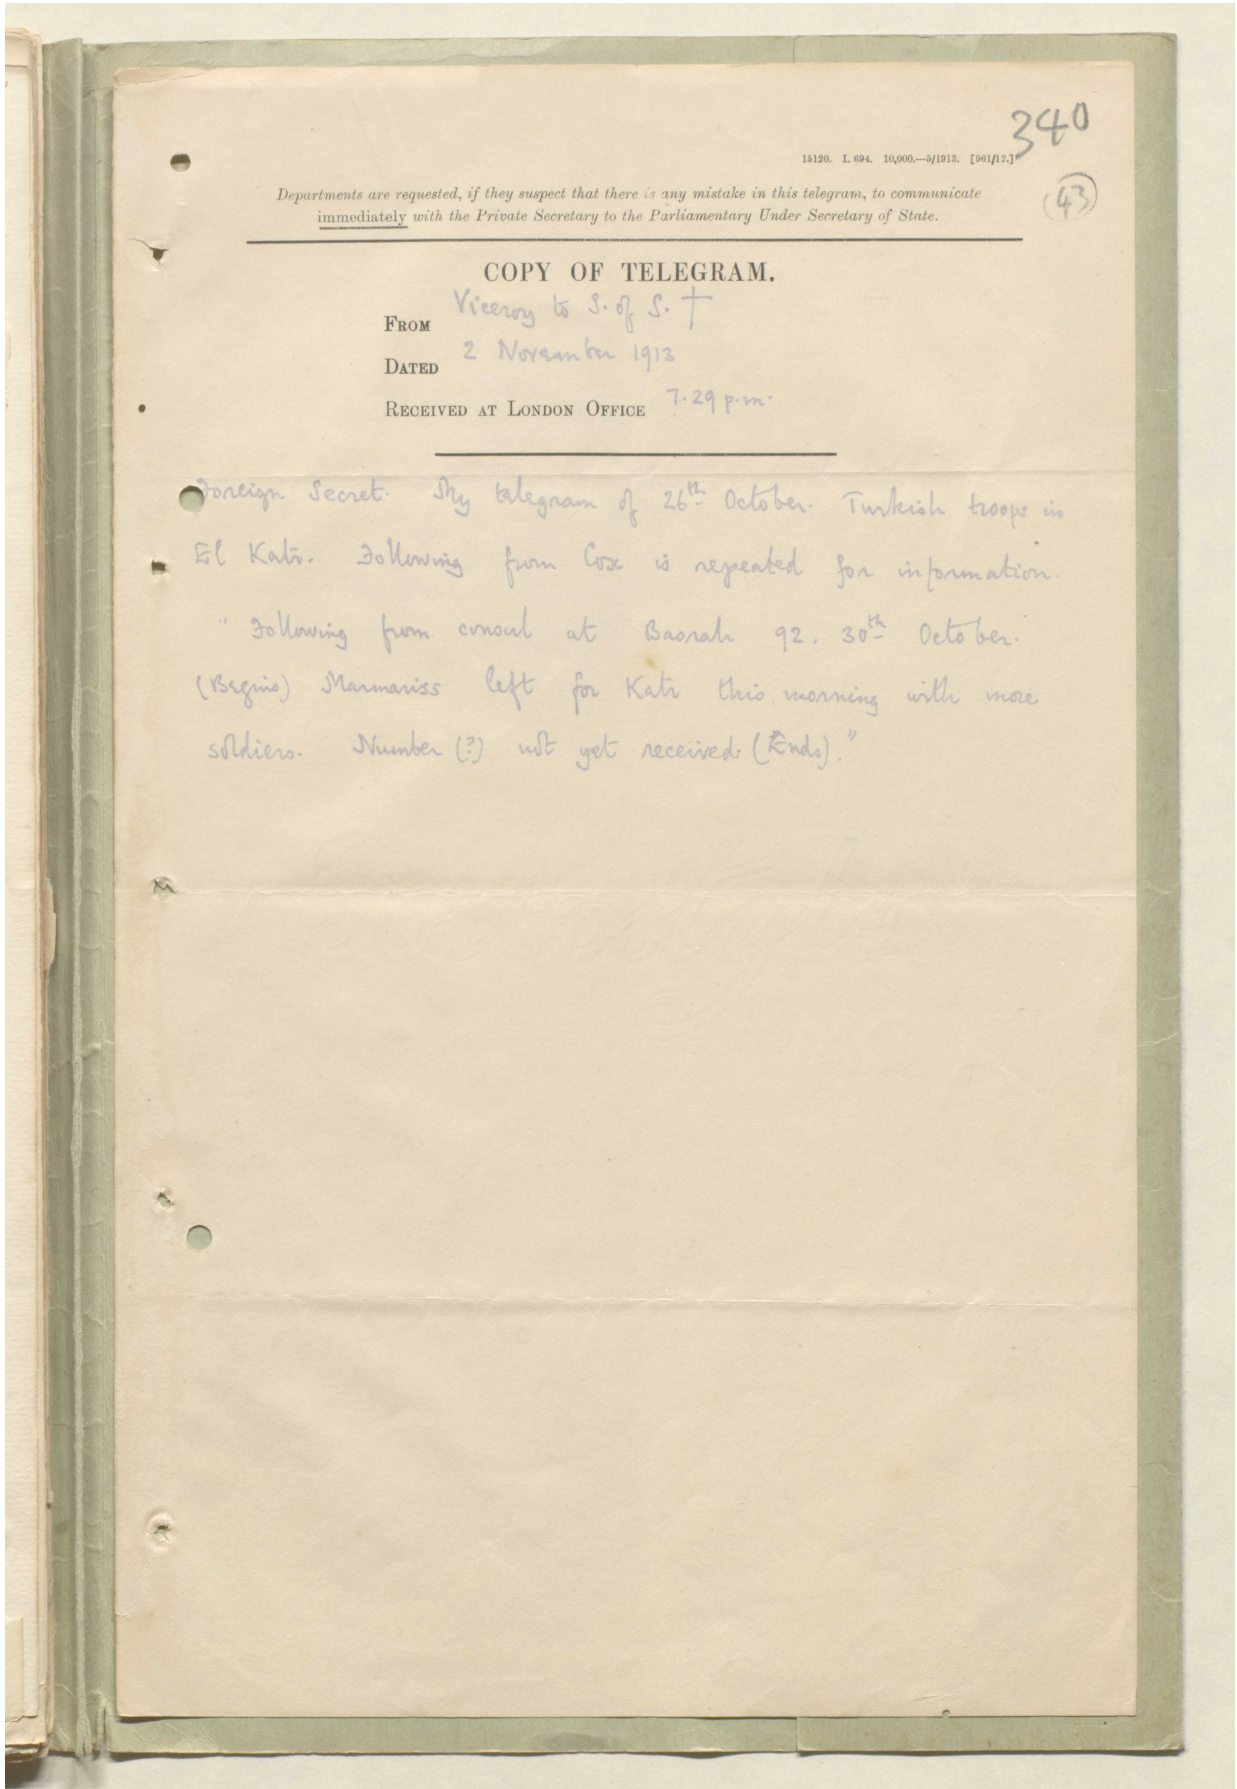 340
15120. I. 694. 10,000.—5/1913. [961/12.]
Departments are requested, if they suspect that there is any mistake in this telegram, to communicate
immediately with the Private Secretary to the Parliamentary Under Secretary of State.
(43)
COPY OF TELEGRAM.
FROM Viceroy to S. of S. †
DATED 2 November 1913
RECEIVED AT LONDON OFFICE 7.29 p.m.
Foreign Secret. My telegram of 26th October. Turkish troops in
El Katr. Following from Cox is repeated for information.
"Following from consul at Basrah 92. 30th October.
(Begins) Marmariss left for Katr this morning with more
soldiers. Number (?) not yet received. (Ends)."